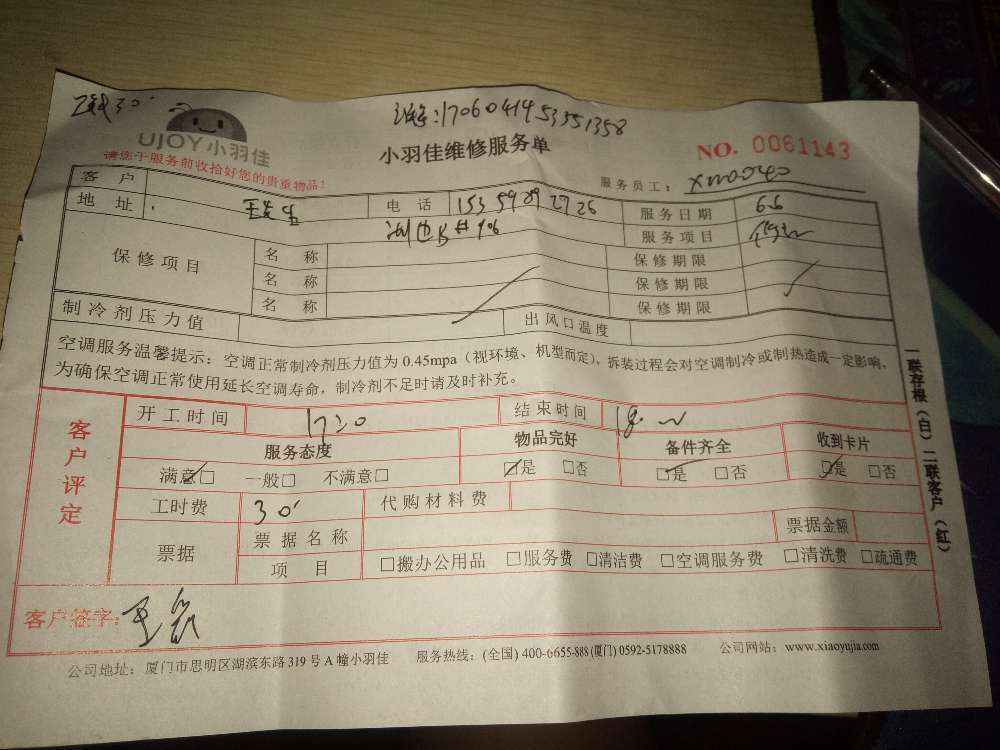 17060414553551358
UJOY小羽佳
小羽佳维修服务单
NO. 0061143
请您于服务前收拾好您的贵重物品!
服务员工: xm0040
客 户 电 话 服务日期 6.6
地 址 服务项目
保修项目 名 称 保修期限
名 称 保修期限
名 称 保修期限
制冷剂压力值 出风口温度
空调服务温馨提示：空调正常制冷剂压力值为 0.45mpa（视环境、机型而定），拆装过程会对空调制冷或制热造成一定影响，
为确保空调正常使用延长空调寿命，制冷剂不足时请及时补充。
一联存根（白）二联客户（红）
客户评定
开工时间 1720 结束时间
服务态度 物品完好 备件齐全 收到卡片
满意□ 一般□ 不满意□ □是 □否 □是 □否 □是 □否
工时费 30 代购材料费
票据 票据名称 票据金额
项 目 □搬办公用品 □服务费 □清洁费 □空调服务费 □清洗费 □疏通费
客户签字：
公司地址：厦门市思明区湖滨东路 319 号 A 幢小羽佳 服务热线：(全国) 400-6655-888 (厦门) 0592-5178888 公司网站：www.xiaoyujia.com